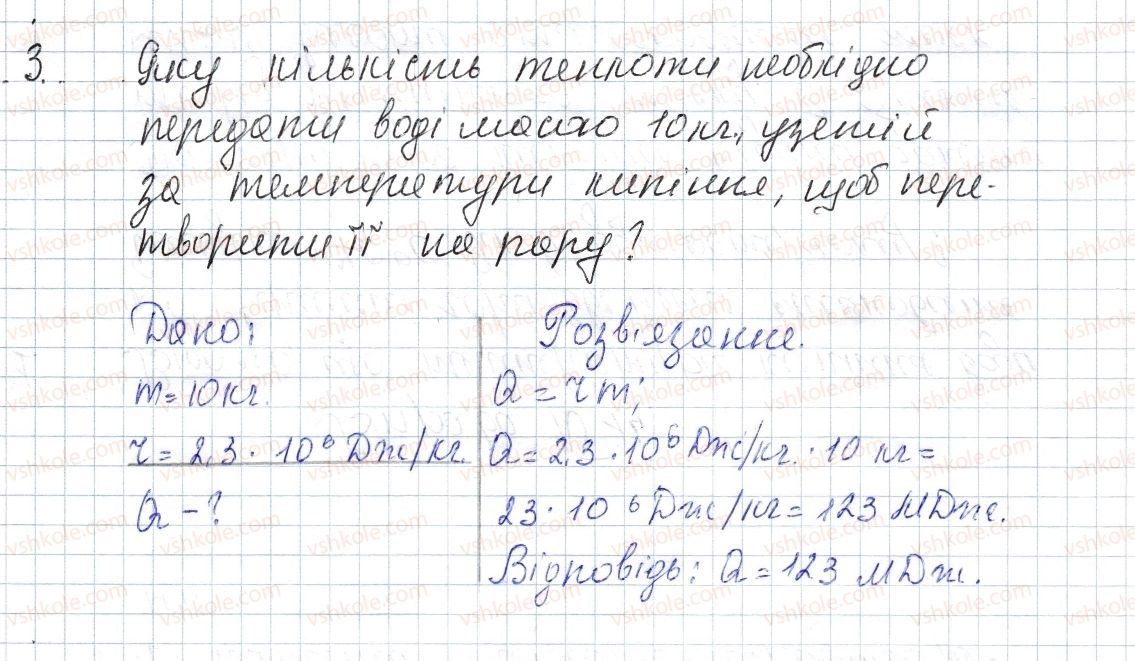 3. Яку кількість теплоти необхідно
передати воді масою 10 кг., узятій
за температури кипіння, щоб пере-
творити її на пару?
Дано:
m = 10 кг.
r = 2,3 · 10⁶ Дж/кг.
Q - ?
Розв'язання.
Q = r m;
Q = 2,3 · 10⁶ Дж/кг. · 10 кг =
23 · 10⁶ Дж/кг = 123 МДж.
Відповідь: Q = 123 МДж.
vshkole.com